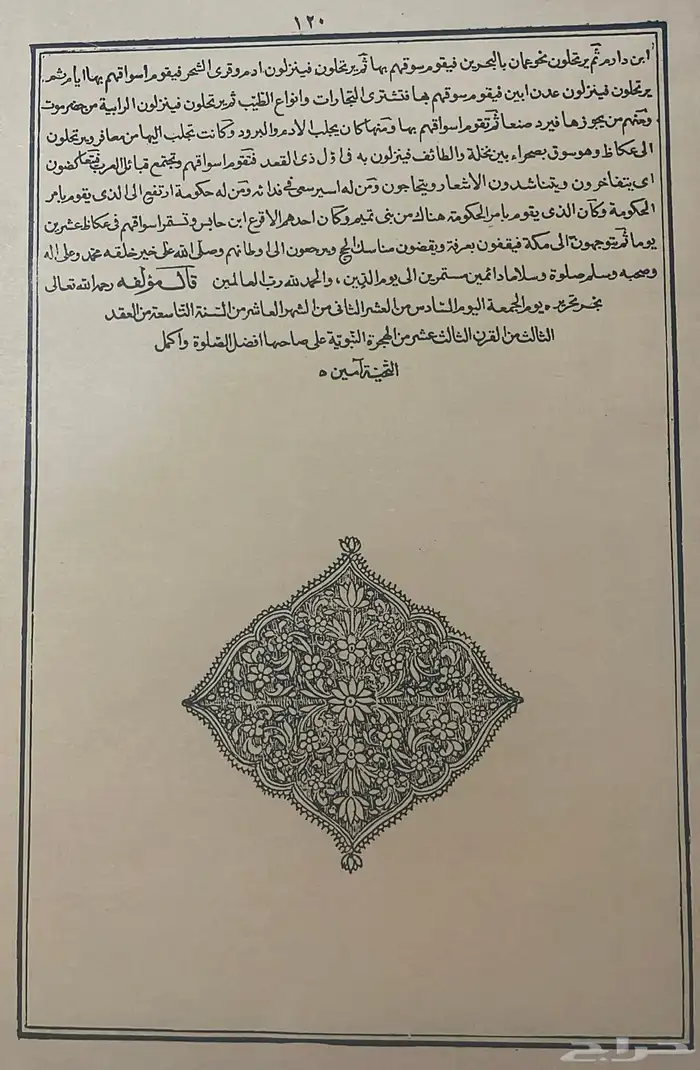 ١٢٠
ابن دارم ثم يرتحلون نحو عمان بالبحرين فيقوم سوقهم بها ثم يرتحلون فينزلون ادم وقرى الشحر فيقوم اسواقهم بها ايام ثم
يرتحلون فينزلون عدن ابين فيقوم سوقهم بها فتشترى التجارات وانواع الطيب ثم يرتحلون فينزلون الرابية من حضرموت
ومنهم من يجوزها فيرد صنعا ثم تقوم اسواقهم بها ومنها كان يجلب الادم والبرود وكانت تجلب اليها من معافر ويرتحلون
الى عكاظ وهو سوق بصحراء بين نخلة والطائف فينزلون به فى اول ذى القعد فتقوم اسواقهم وتجتمع قبائل العرب فيتعاكضون
اى يتفاخرون ويتناشدون الاشعار ويتحاجون ومن له اسير سعى فى فدائه ومن له حكومة ارتفع الى الذى يقوم بامر
الحكومة وكان الذى يقوم بامر الحكومة هناك من بنى تميم وكان احدهم الاقرع ابن حابس وتستقر اسواقهم فى عكاظ عشرين
يوما ثم يتوجهون الى مكة فيقفون بعرفة ويقضون مناسك الحج ويرجعون الى اوطانهم وصلى الله على خير خلقه محمد وعلى اله
وصحبه وسلم صلوة وسلاما دائمين مستمرين الى يوم الدين ، والحمد لله رب العالمين قال مؤلفه رحمه الله تعالى
نجز تحريره يوم الجمعة اليوم السادس من العشر الثانى من الشهر العاشر من السنة التاسعة من العقد
الثالث من القرن الثالث عشر من الهجرة النبوية على صاحبها افضل الصلوة واكمل
التحية آمين ه
حراج